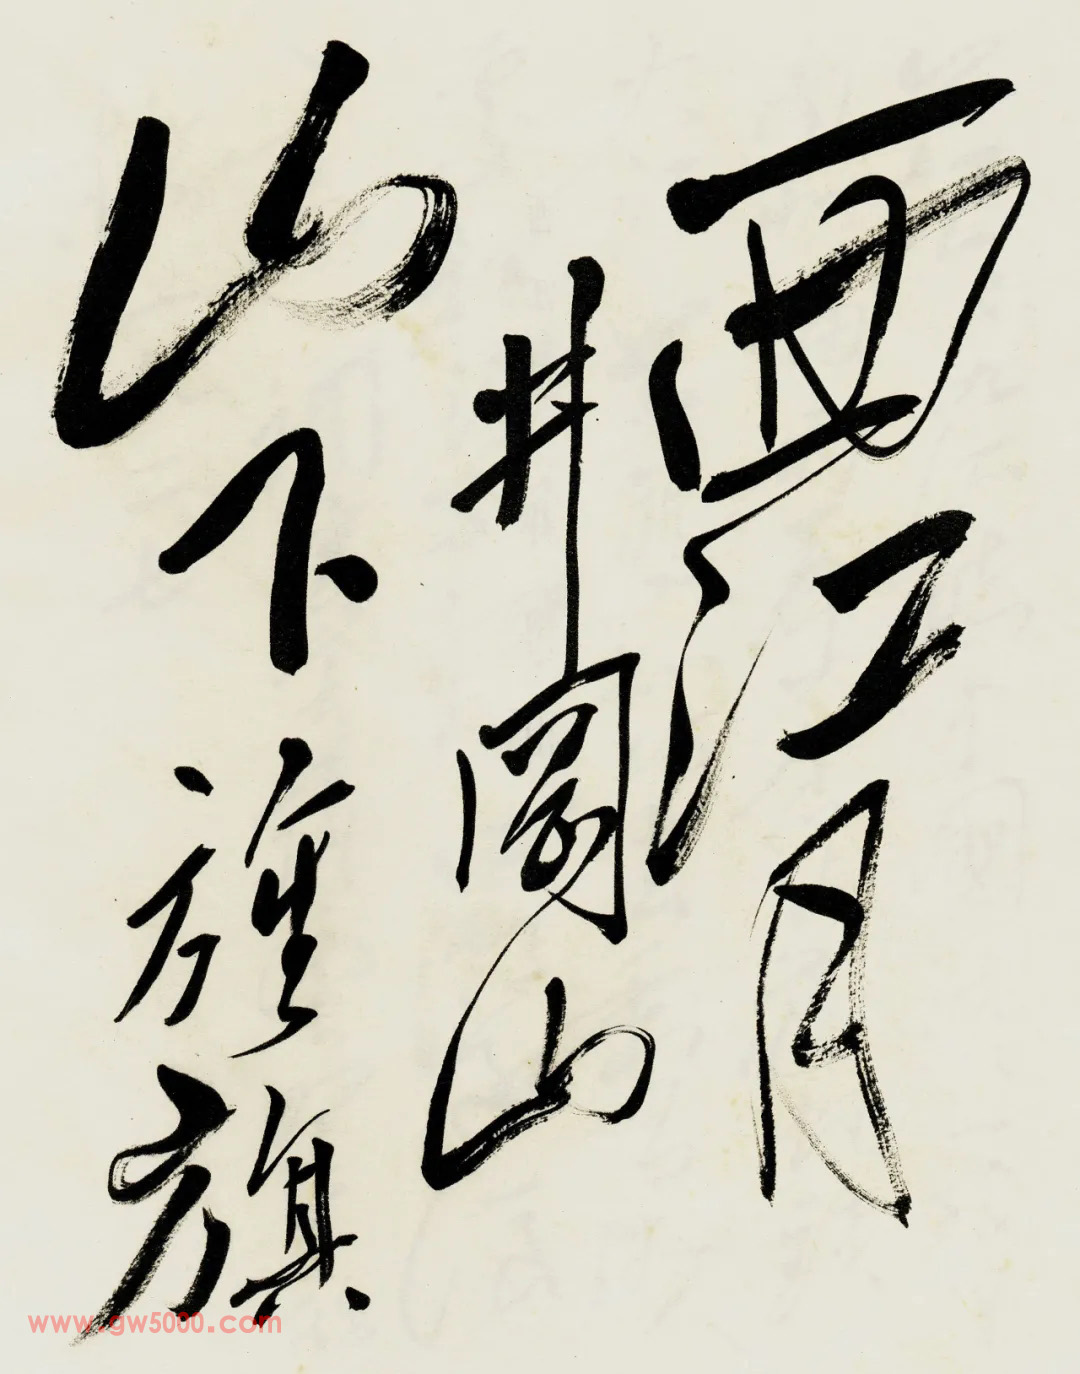 西江月
井冈山
山下旌旗
www.gw5000.com